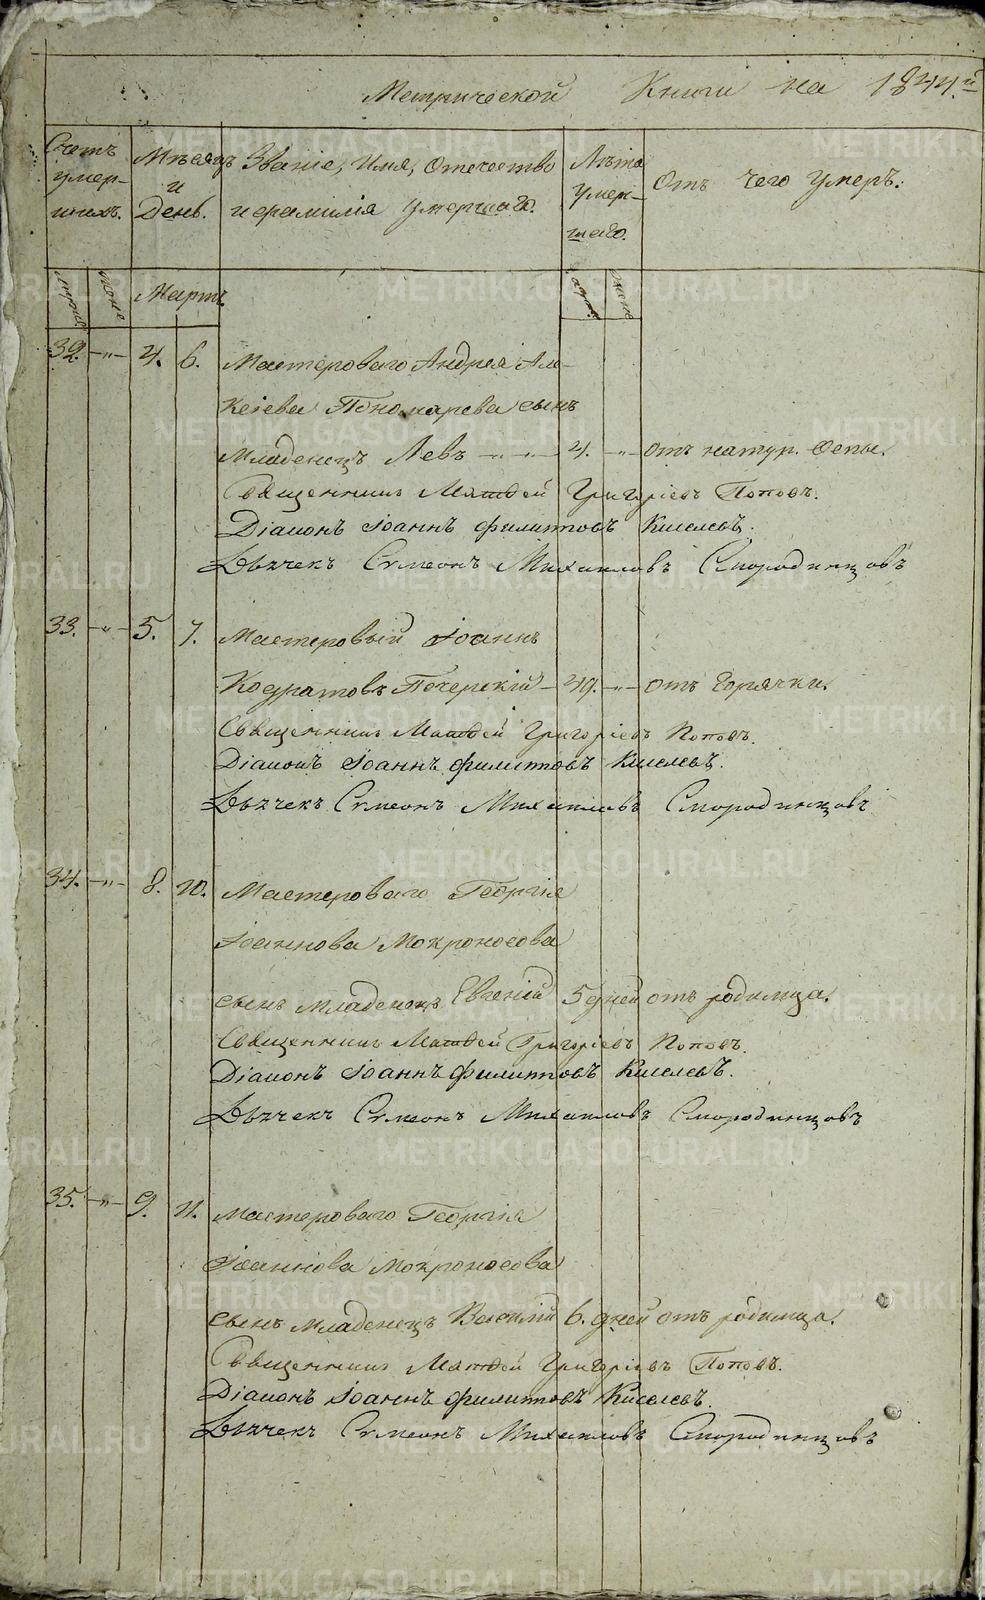 Метрической Книги на 1844й
Счетъ умер-шихъ.
Мѣсяцъ и День.
Званіе, Имя, Отечество и фамилія умершаго.
Лѣта умер-шаго.
Отъ чего умеръ.
муже
жене
Мартъ
муже
жене
32. —"— 4. 6. Мастероваго Андрея Але-
ксіева Пономарева сынъ
Младенецъ Левъ —"— 4. —"— отъ натур. оспы.
Священникъ Матѳей Григоріевъ Поповъ.
Діаконъ Іоаннъ Филиповъ Киселевъ.
Дьячекъ Симеонъ Михаиловъ Смородинцовъ
33. —"— 5. 7. Мастеровый Іоаннъ
Кодратовъ Печерскій — 49. —"— отъ горячки.
Священникъ Матѳей Григоріевъ Поповъ.
Діаконъ Іоаннъ Филиповъ Киселевъ.
Дьячекъ Симеонъ Михаиловъ Смородинцовъ
34. —"— 8. 10. Мастероваго Георгія
Іоаннова Мокроносова
сынъ младенецъ Евгеній 5 дней отъ родимца.
Священникъ Матѳей Григоріевъ Поповъ.
Діаконъ Іоаннъ Филиповъ Киселевъ.
Дьячекъ Симеонъ Михаиловъ Смородинцовъ
35. —"— 9. 11. Мастероваго Георгія
Іоаннова Мокроносова
сынъ младенецъ Василій 6. дней отъ родимца.
Священникъ Матѳей Григоріевъ Поповъ.
Діаконъ Іоаннъ Филиповъ Киселевъ.
Дьячекъ Симеонъ Михаиловъ Смородинцовъ
METRIKI.GASO-URAL.RU